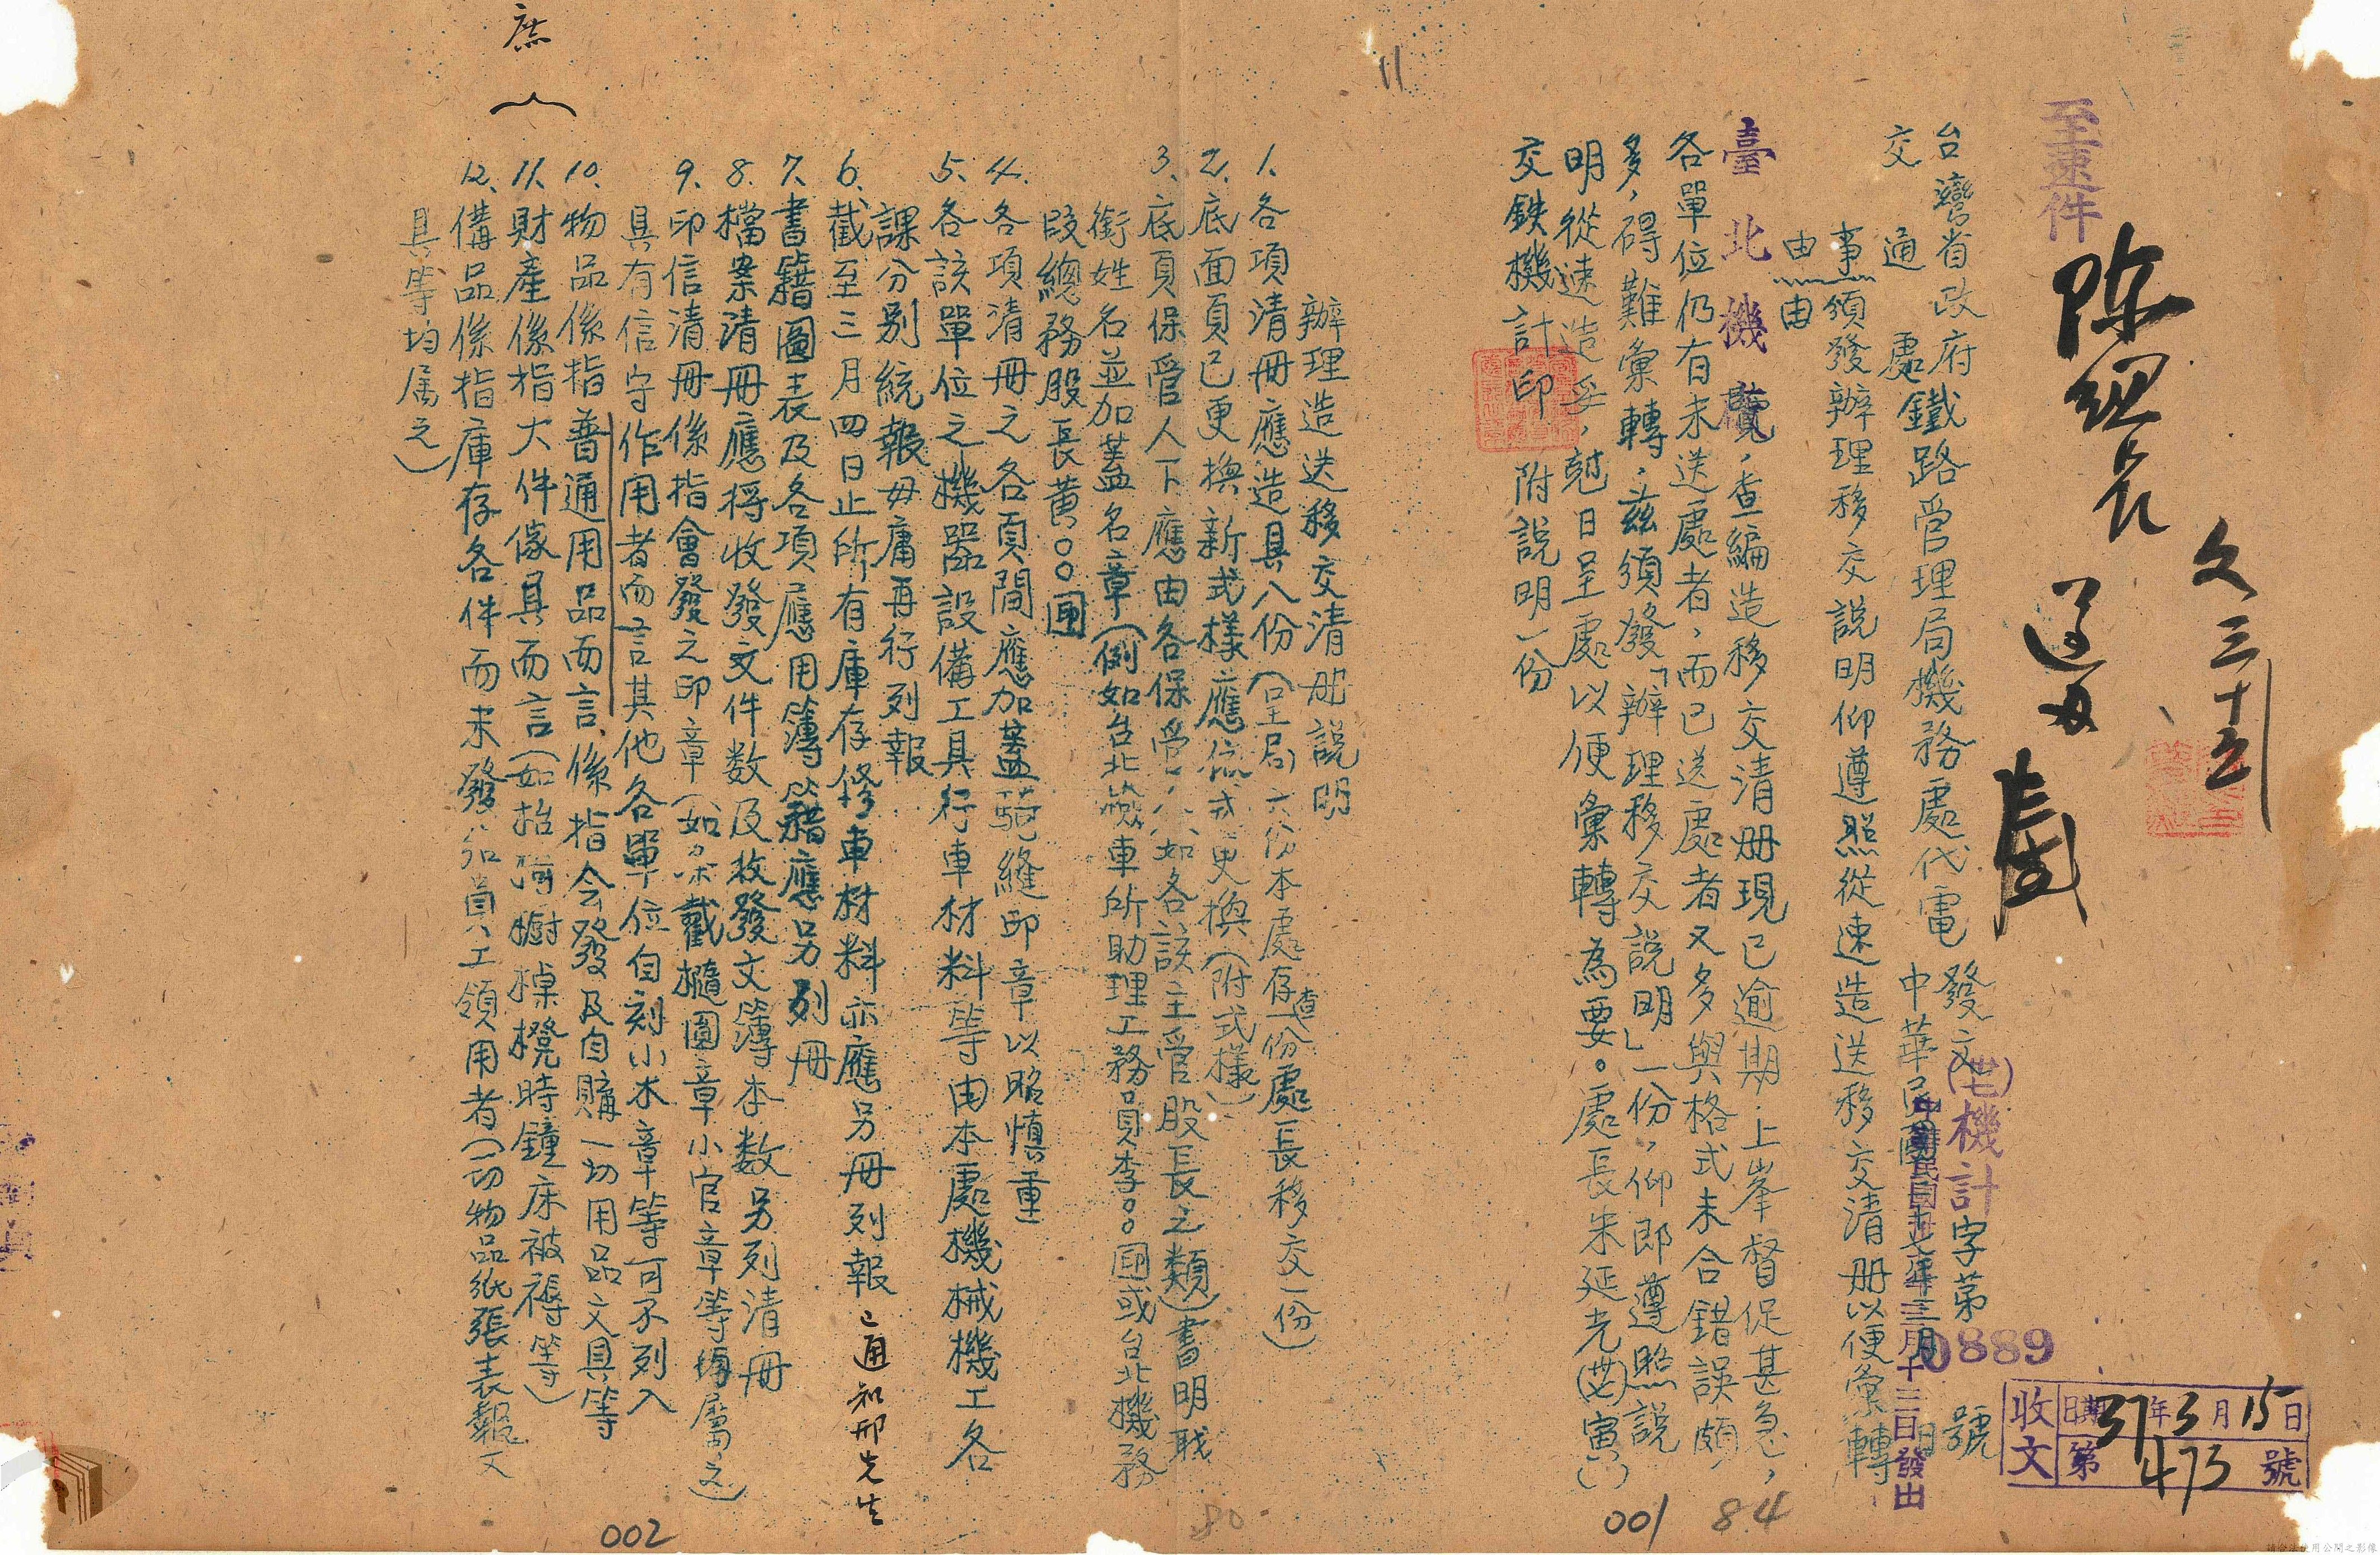 至速件
陳組長
文三十五
台灣省政府鐵路管理局機務處代電
交通處
發文(卅七)機計字第0889號
中華民國卅七年三月十三日發出
事由
須發辦理移交說明仰遵照從速造送移交清册以便彙轉
由
臺北機覽,查編造移交清册現已逾期,上峯督促甚急,
各單位仍有未送處者,而已送處者又多與格式未合錯誤頗
多,碍難彙轉.茲須發「辦理移交說明」一份,仰即遵照說
明從速造妥,尅日呈處以便彙轉為要。處長朱延光(卅七)寅()
交鉄機計印 附説明一份
收文
日期37年3月15日
第473號
辦理造送移交清册說明
1.各項清册應造具八份(呈局六份本處存查一份處長移交一份)
2.底面頁已更換新式樣應依式更換(附式樣)
3.底頁保管人下應由各保管人(如各該主管股長之類)書明職
銜姓名並加蓋名章(例如台北檢車所助理工務員李○○圖或台北機務
段總務股長黃○○圖
4.各項清册之各頁間應加蓋騎縫印章以昭慎重
5.各該單位之機器設備工具行車材料等由本處機械機工各
課分别統報毋庸再行列報
6.截至三月四日止所有庫存修車材料亦應另册列報 已通知邢先生
7.書籍圖表及各項應用簿籍應另列册
8.檔案清册應将收發文件数及收發文簿本数另列清册
9.印信清册係指會發之印章(如戳橢圓章小官章等均屬之)
具有信守作用者而言其他各單位自刻小木章等可不列入
10.物品係指普通用品而言.係指会發及自購一切用品文具等
11.財產係指大件傢具而言(如枱椅橱棹櫈時鐘床被褥等)
12.備品係指庫存各件而未發給員工領用者(一切物品紙張表報文
具等均屬之)
庶
11
001
84
80
002